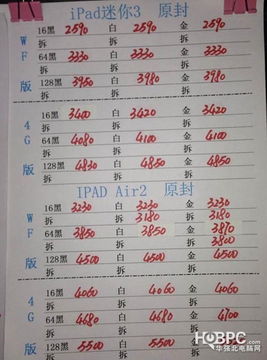 iPad迷你3 原封
W 16黑 2590 白 2590 金 2590
拆 拆 拆
F 64黑 3330 白 3330 金 3330
拆 拆 拆
版 128黑 3950 白 3980 金 3980
拆 拆 拆
4 16黑 3400 白 3420 金 3420
拆 拆 拆
G 64黑 4080 白 4100 金 4100
拆 拆 拆
版 128黑 4830 白 4850 金 4850
拆 拆 拆
IPAD Air2 原封
W 16黑 3230 白 3230 金 3230
拆 拆 3180 拆 3180
F 64黑 3850 白 3850 金 3870
拆 拆 拆 3800
版 128黑 4500 白 4500 金 4500
拆 拆 拆
4 16黑 4060 白 4060 金 4060
拆 拆 拆
G 64黑 4680 白 4680 金 4700
拆 拆 拆
版 128黑 5500 白 5500 金
拆 拆
HQBPC.com
华强北电脑网